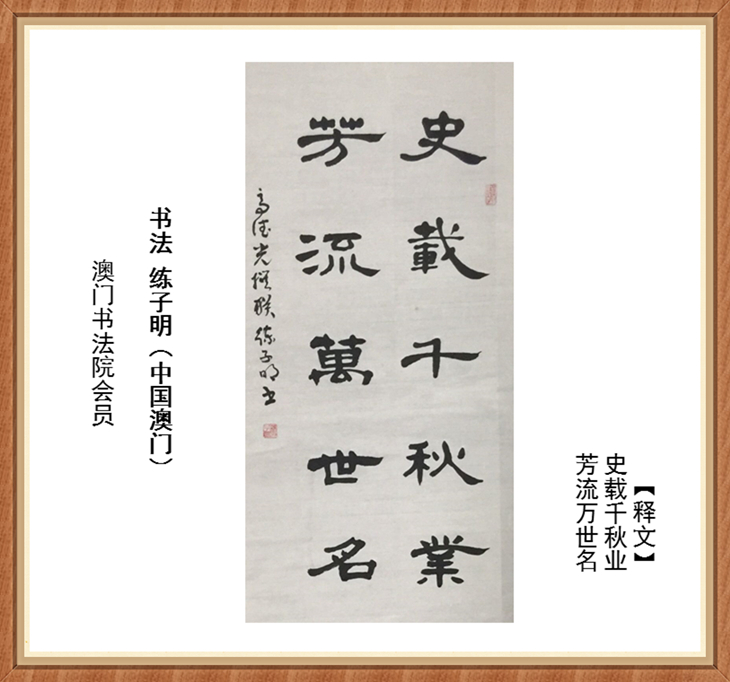 【释文】
史载千秋业
芳流万世名
史載千秋業
芳流萬世名
高德光撰联 练子明书
书法 练子明（中国澳门）
澳门书法院会员